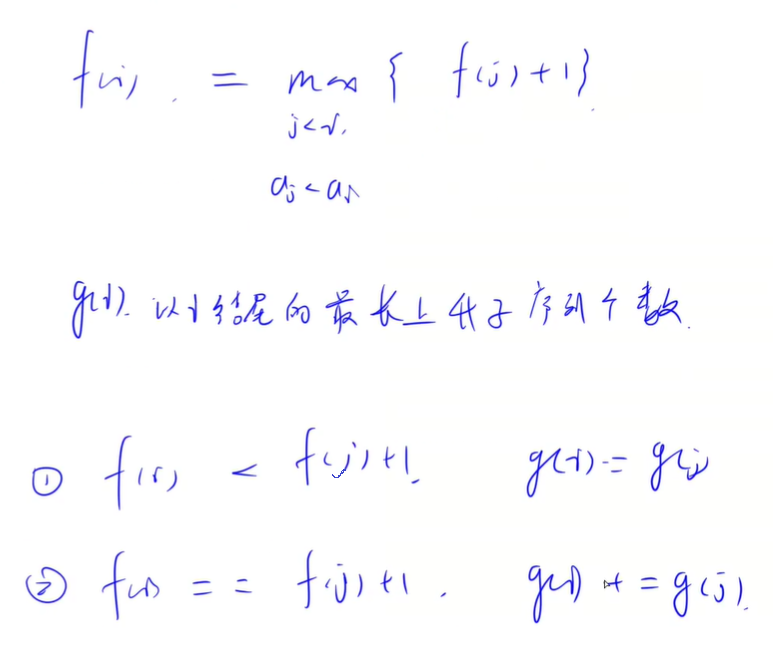 f(i) = max { f(j)+1 }
j<i
aj < ai
g(i). 以i结尾的最长上升子序列个数.
① f(i) < f(j)+1. g(i) = g(j)
② f(i) == f(j)+1. g(i) += g(j).